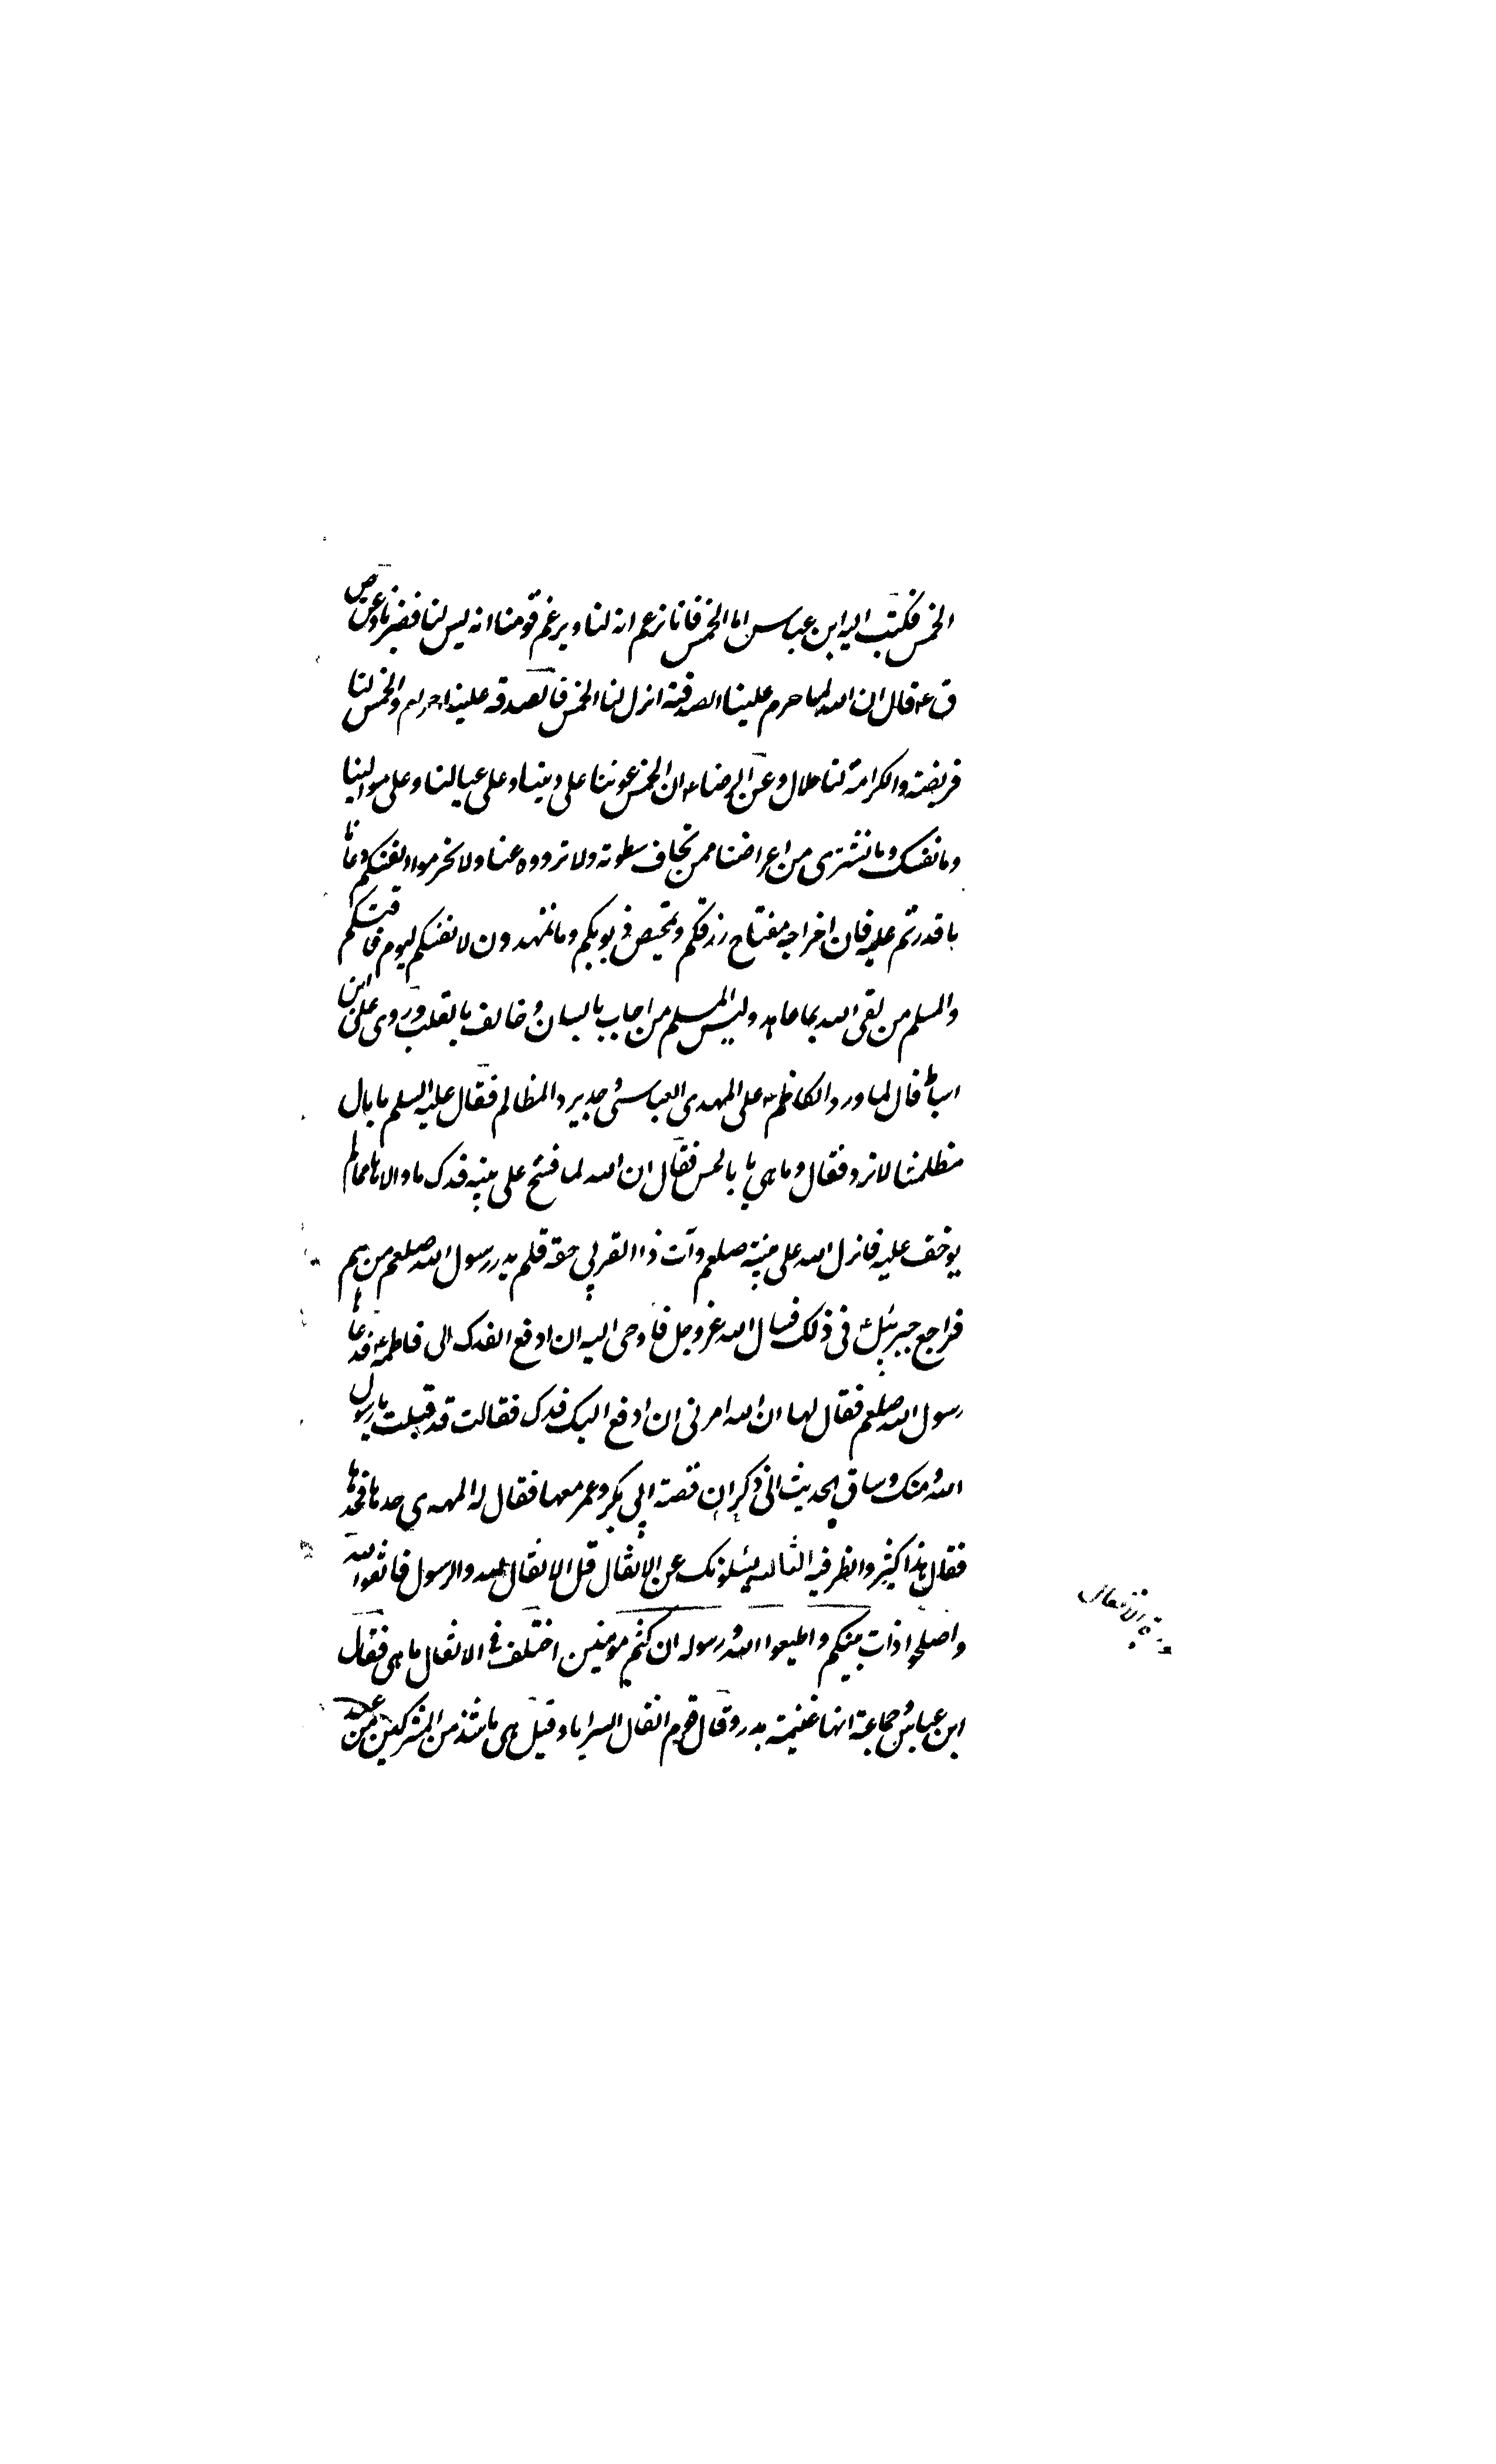 الخمس فكتب اليه ابن عباس اما الخمس فانا نزعم انه لنا ويزعم قومنا انه ليس لنا فصبرنا وعن ص
ق ع قال ان الله لما حرم علينا الصدقة انزل لنا الخمس فالصدقة علينا حرام والخمس لنا
فريضة والكرامة لنا حلال وعن الرضا ع ان الخمس عوننا على ديننا وعلى عيالنا وعلى موالينا
وما نفك وما نشترى من اعراضنا ممن نخاف سطوته ولا تزووه عنا ولا تحرموا انفسكم دعانا
ما قدرتم عليه فان اخراجه مفتاح رزقكم وتمحيص ذنوبكم وما تمهدون لانفسكم ليوم فاقتكم
والمسلم من لقى الله بما عاهد وليس المسلم من اجاب باللسان وخالف بالقلب وروى على ابن
اسباط قال لما ورد الكاظم ع على المهدى العباسى وجده يرد المظالم فقال عليه السلم ما بال
مظلمتنا لا ترد فقال وما هى يا با الحسن فقال ان الله لما فتح على نبيه فدك وما والاها مما لم
يوجف عليه فانزل الله على نبيه صلعم وآت ذا القربى حقه فلم يدر رسول الله صلعم من هم
فراجع جبرئيل فى ذلك فسال الله عز وجل فاوحى اليه ان ادفع الفدك الى فاطمة ع فدعاها
رسول الله صلعم فقال لها ان الله امرنى ان ادفع اليك فدك فقالت قد قبلت يا رسول
الله منك وساق الحديث الى ذكر ان قصة ابى بكر وعمر معها فقال له المهدى حدها فحدها
فقال هذا كثير وانظر فيه الثالثة يسئلونك عن الانفال قل الانفال لله والرسول فاتقوا الله
واصلحوا ذات بينكم واطيعوا الله ورسوله ان كنتم مومنين اختلف فى الانفال ما هى فقال
ابن عباس وجماعة انها غنيمة بدر وقال قوم انفال السرايا وقيل هى ما شذ من المشركين من عبد
الانفال